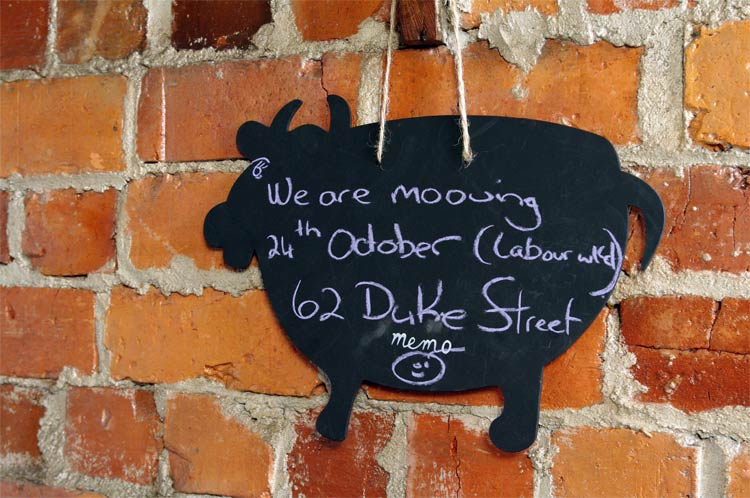 We are mooving
24th October (Labour wkd)
62 Duke Street
memo